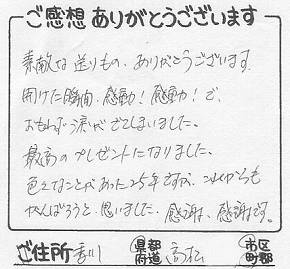 ご感想ありがとうございます
素敵な送りもの、ありがとうございます。
開けた瞬間、感動!感動!で、
おもわず涙がでてしまいました。
最高のプレゼントになりました。
色々なことがあった25年ですが、これからも
がんばろうと思いました。感謝、感謝です。
ご住所 香川 都道府県 高松 市区町郡